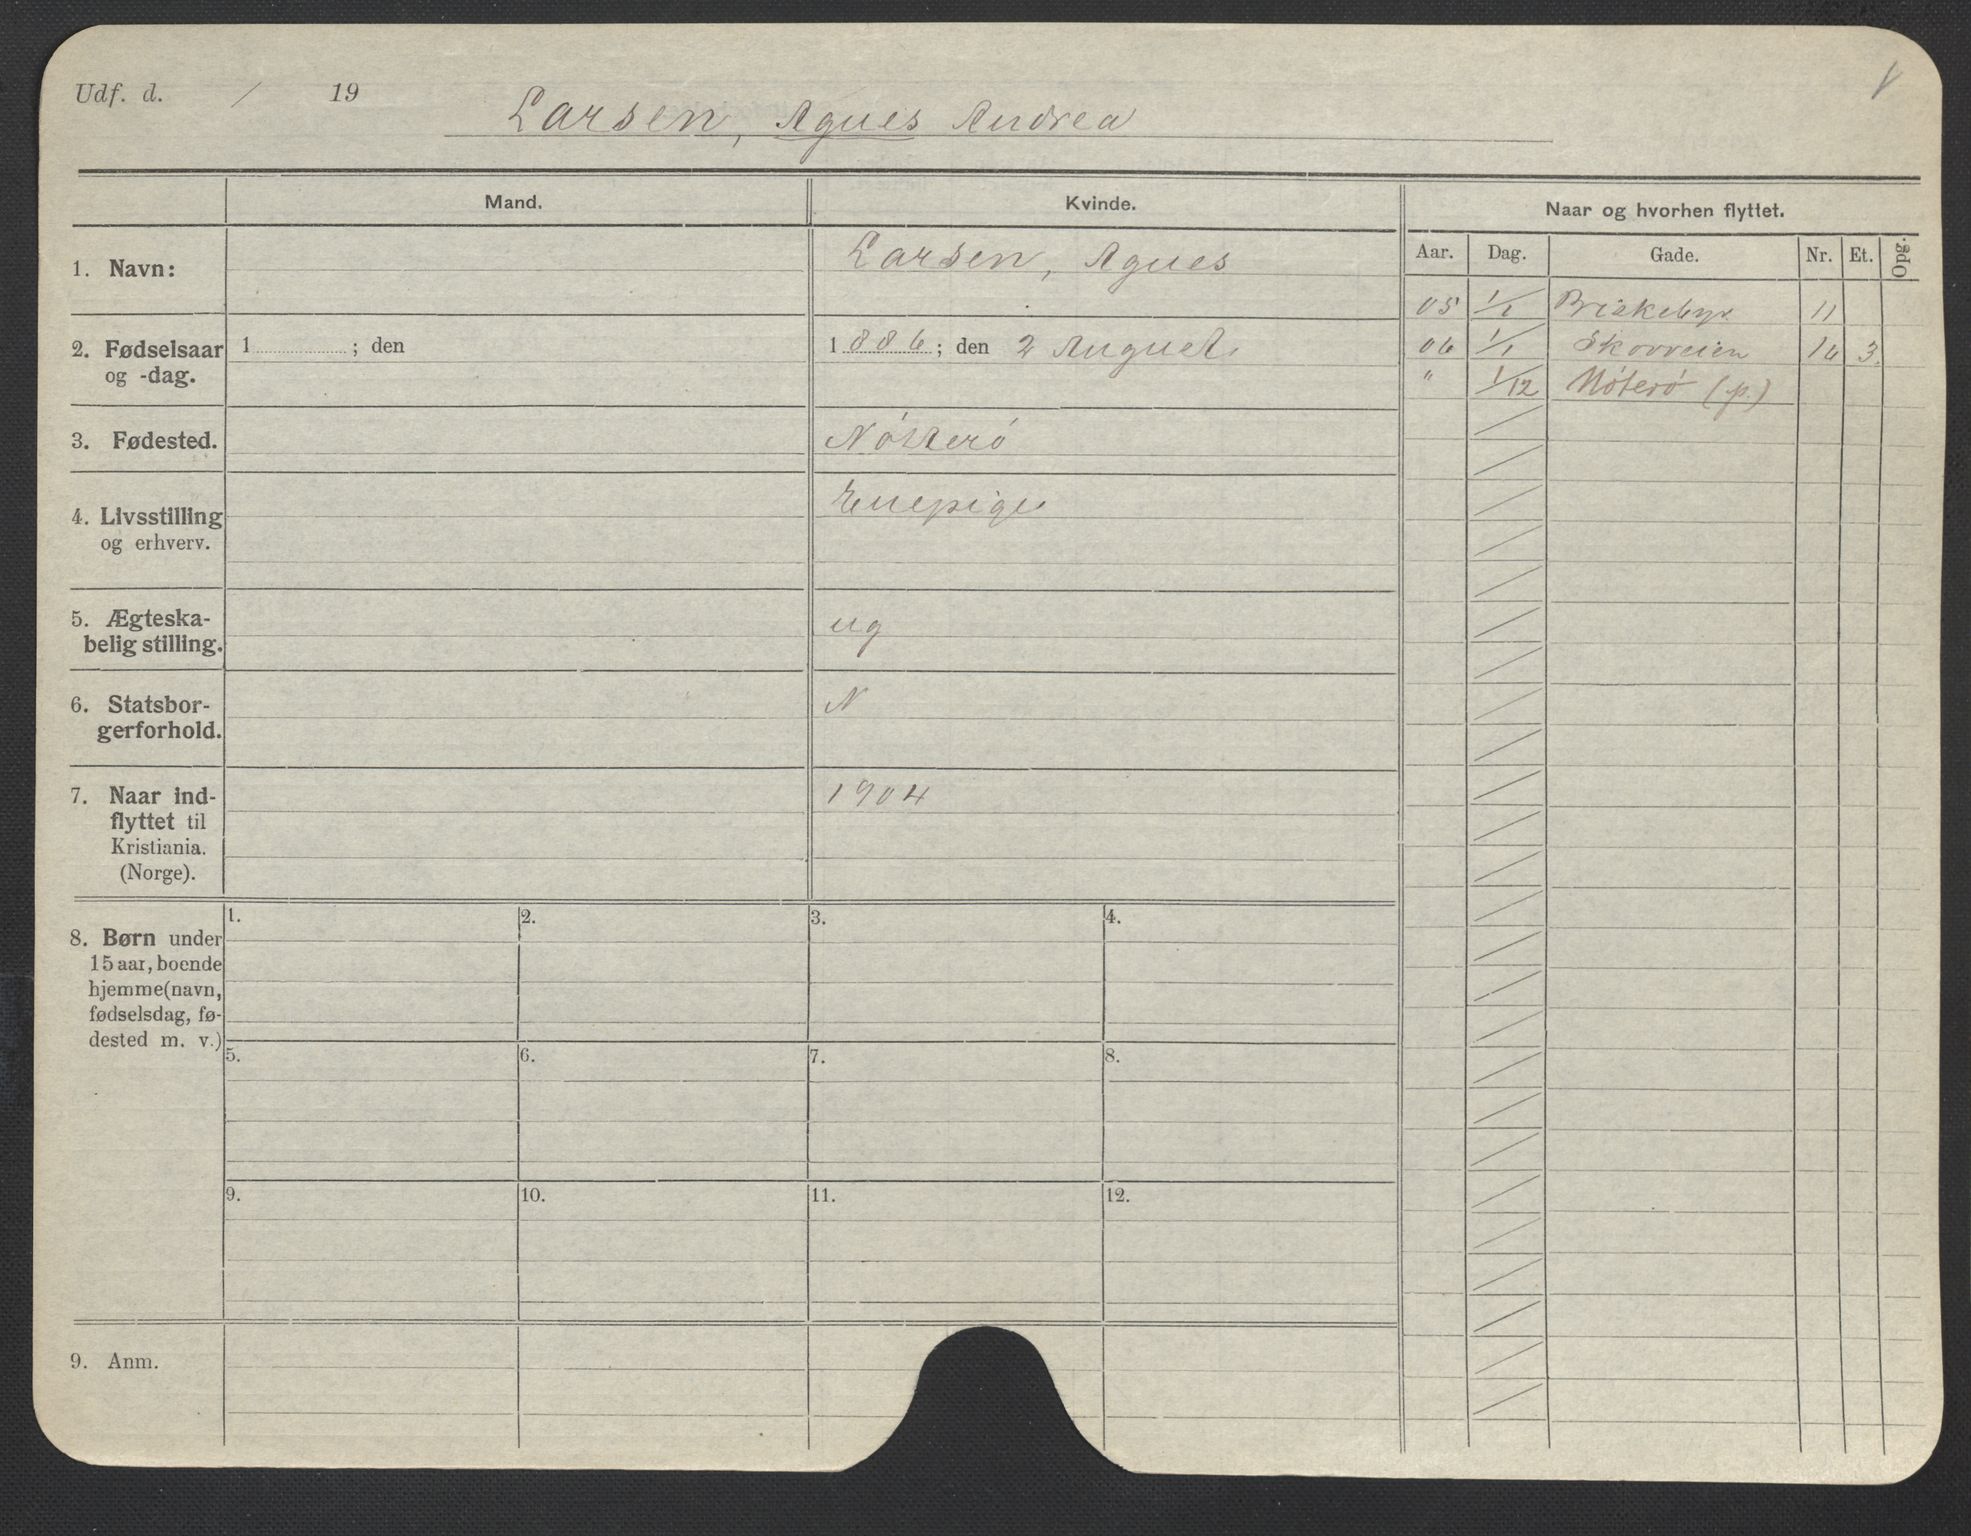 Udf. d. / 19
Larsen, Agnes Andrea
Mand. Kvinde. Naar og hvorhen flyttet.
Aar. Dag. Gade. Nr. Et. Opg.
1. Navn: Larsen, Agnes
05 1/1 Briskebyv 11
2. Fødselsaar 1 ; den 1886; den 2 August.
og -dag.
06 1/1 Skovveien 16 3.
" 1/12 Nøterø (p.)
3. Fødested. Nøtterø
4. Livsstilling Enepige
og erhverv.
5. Ægteska-
belig stilling. ug
6. Statsbor- N
gerforhold.
7. Naar ind- 1904
flyttet til
Kristiania.
(Norge).
8. Børn under
15 aar, boende
hjemme (navn,
fødselsdag, fø-
dested m. v.)
1. 2. 3. 4.
5. 6. 7. 8.
9. 10. 11. 12.
9. Anm.